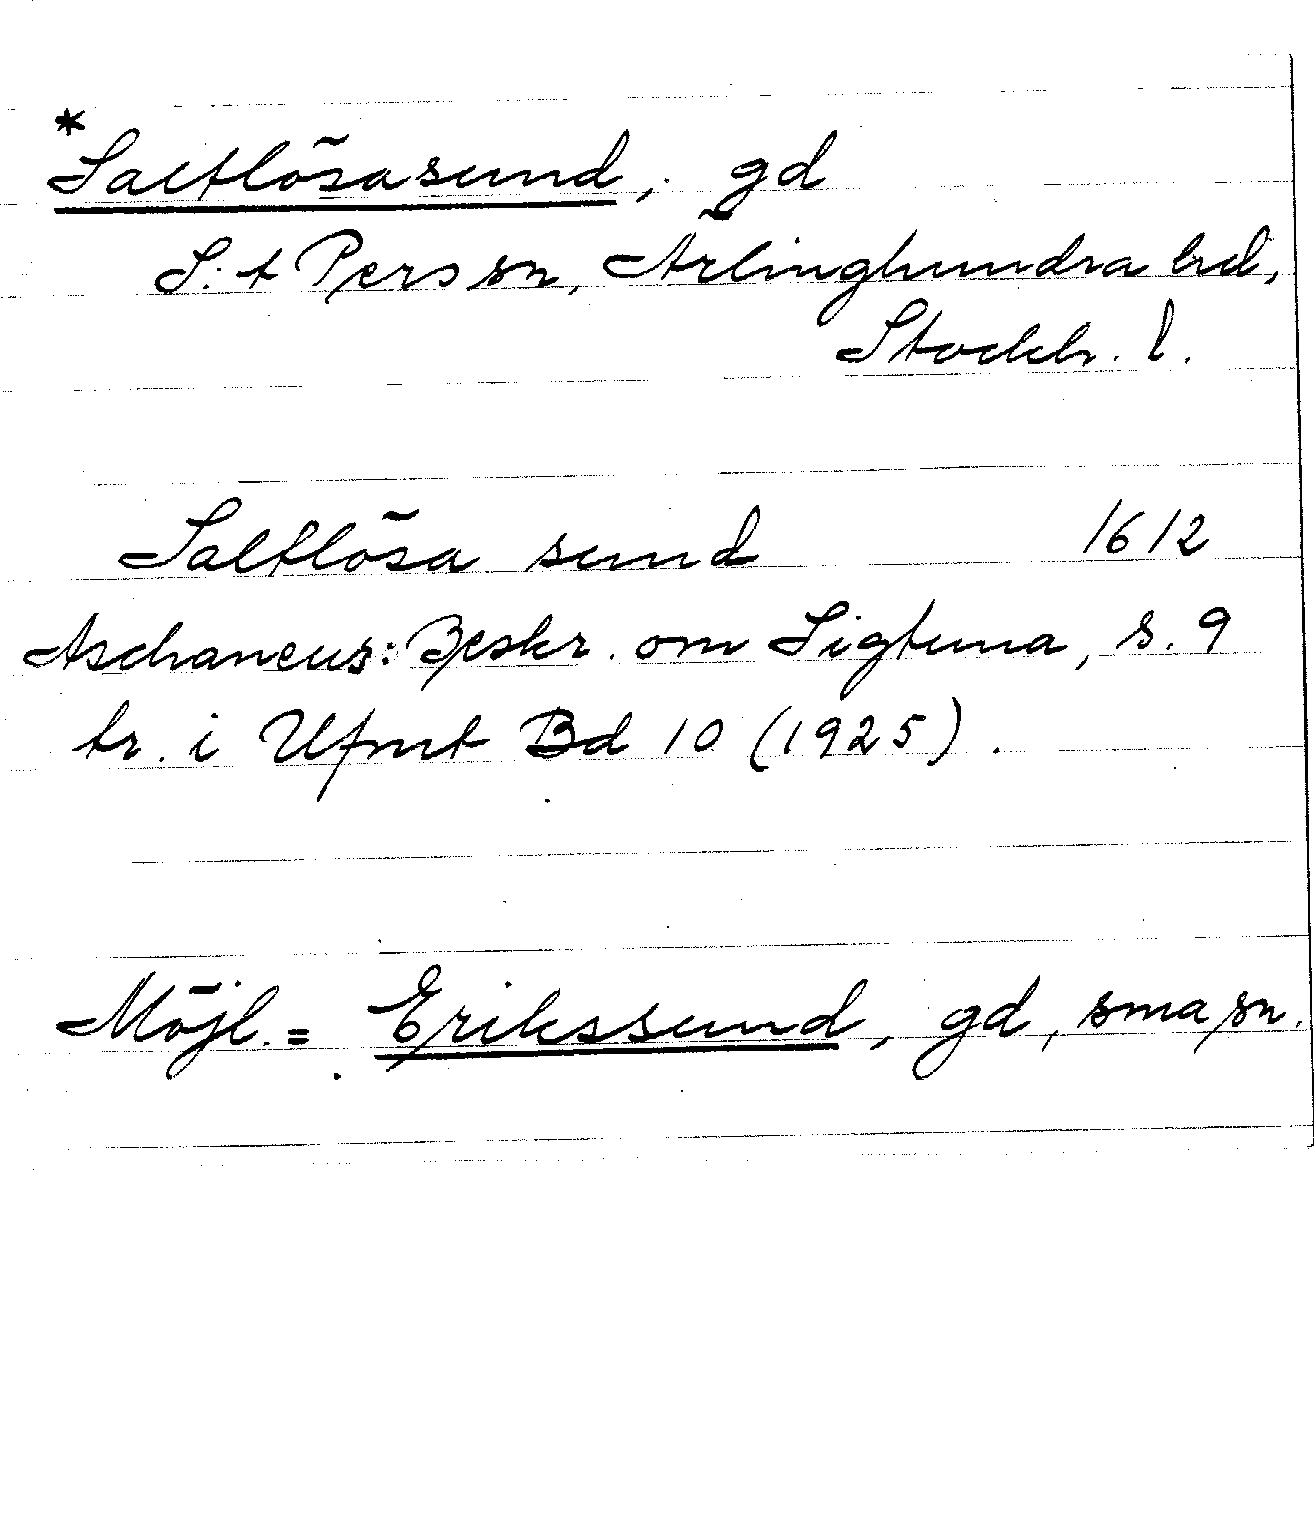 *Saltlösasund, gd
S:t Pers sn, Ärlinghundra hd,
Stockh. l.
Saltlösa sund 1612
Aschaneus: Beskr. om Sigtuna, s. 9
tr. i Ufmt Bd 10 (1925).
Möjl. = Erikssund, gd, sma sn.